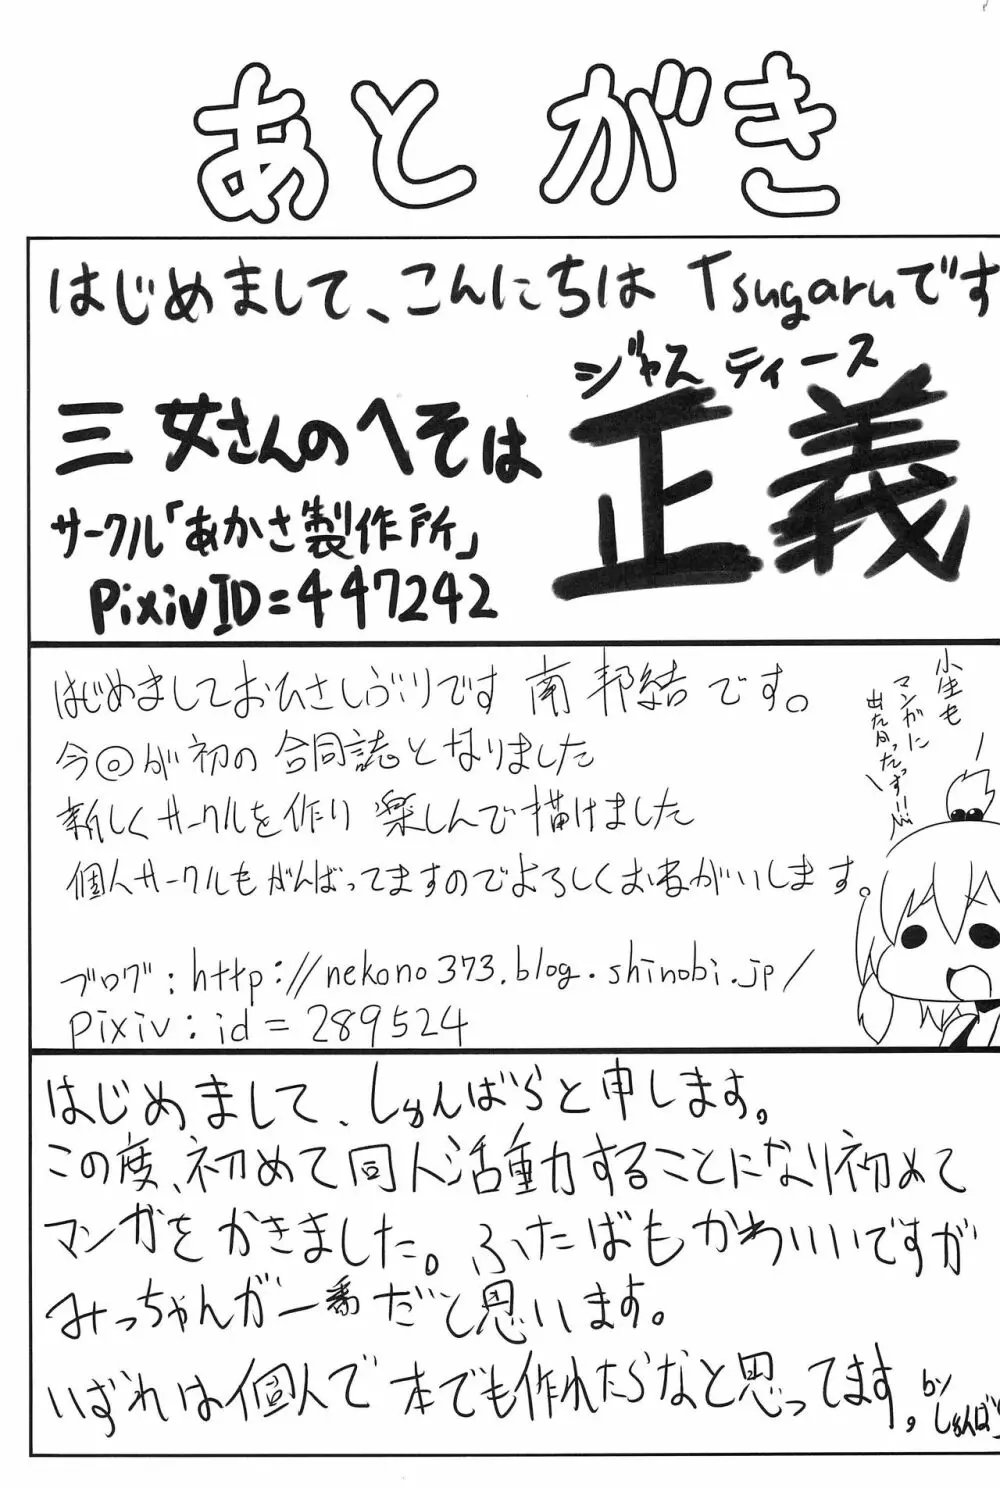 あとがき
はじめまして、こんにちは Tsugaruです
ジャスティース
三女さんのへそは 正義
サークル「あかさ製作所」
PixivID=447242
はじめましておひさしぶりです 南邦結です。
今回が初の合同誌となりました
新しくサークルを作り 楽しんで描けました
個人サークルもがんばってますのでよろしくおねがいします。
ブログ:http://nekono373.blog.shinobi.jp/
pixiv:id=289524
小生も
マンガに
出たかったっす!!
はじめまして、しゅんばらと申します。
この度、初めて同人活動することになり初めて
マンガをかきました。ふたばもかわいいですが
みっちゃんが一番だと思います。
いずれは個人で本でも作れたらなと思ってます。
by
しゅんば